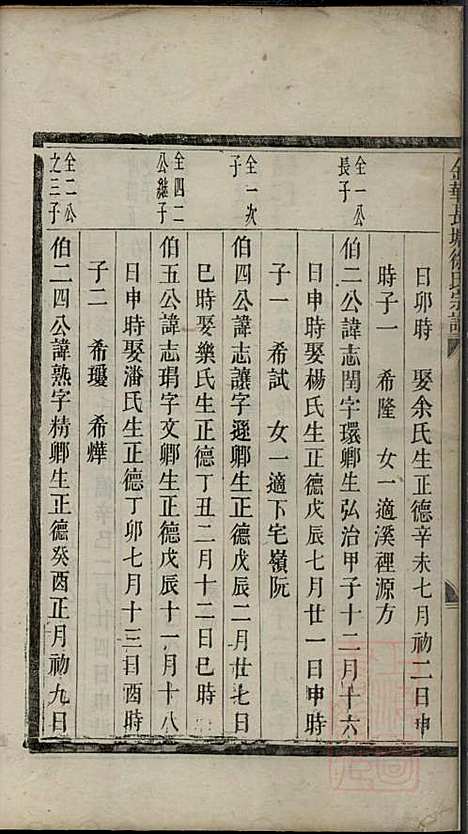 金華長塢徐氏宗譜
日卯時　娶余氏生正德辛未七月初二日申
時子一　希隆　女一適溪裡源方
仝一公
長子
伯二公諱志閏字環卿生弘治甲子十二月十六
日申時娶楊氏生正德戊辰七月廿一日申時
子一　希試　女一適下宅嶺阮
仝一次
子
伯四公諱志讓字遜卿生正德戊辰二月廿七日
巳時娶樂氏生正德丁丑二月十二日巳時
仝四二
公繼子
伯五公諱志琄字文卿生正德戊辰十一月十八
日申時娶潘氏生正德丁卯七月十三日酉時
子二　希瓊　希燁
仝二公
之三子
伯二四公諱熟字精卿生正德癸酉正月初九日